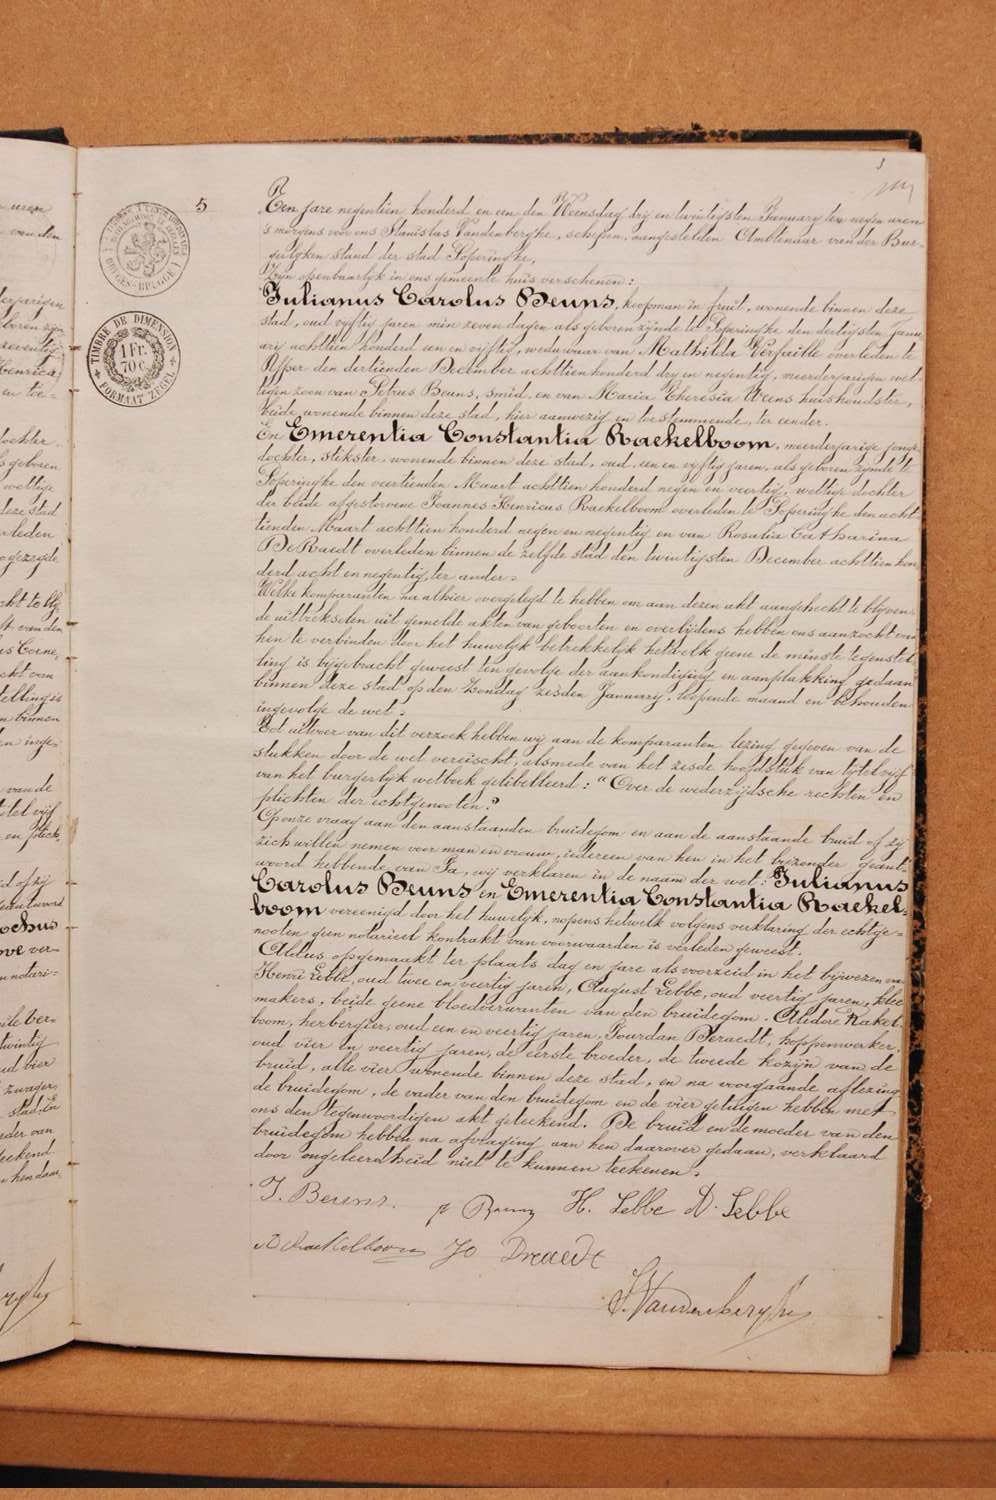 5
Ten jare negentien honderd en een den Woensdag dry en twintigsten January ten negen uren
's morgens voor ons Stanislas Vandenberghe, schepen, aangestelden Ambtenaar van der Bur-
gerlyken stand der stad Poperinghe,
Zyn openbaarlyk in ons gemeente huis verschenen:
Julianus Carolus Beuns, koopman in fruit, wonende binnen deze
stad, oud vyftig jaren min zeven dagen als geboren zynde te Poperinghe den dertigsten Janu-
ary achttien honderd een en vyftig, weduwaar van Mathilda Verfaillie overleden te
den dertienden December achttien honderd dry en negentig, meerderjarigen wet-
tigen zoon van Petrus Beuns, smid, en van Maria Theresia Weens huishoudster,
beide wonende binnen deze stad, hier aanwezig en toestemmende, ter eender.
En Emerentia Constantia Raekelboom, meerderjarige jonge
dochter, stikster, wonende binnen deze stad, oud een en vyftig jaren, als geboren zynde te
Poperinghe den veertienden Maart achttien honderd negen en veertig, wettige dochter
der beide afgestorvene Joannes Henricus Raekelboom overleden te Poperinghe den acht-
tienden Maart achttien honderd negen en negentig en van Rosalia Catharina
DeRaedt overleden binnen de zelfde stad den twintigsten December achttien hon-
derd acht en negentig, ter ander.
Welke komparanten na alhier overgelegd te hebben om aan dezen akt aangehecht te blyven
de uittreksolen uit gemelde akten van geboorten en overlydens hebben ons aanzocht van
hen te verbinden door het huwelyk betrekkelyk hetwelk geene de minste tegenstel-
ling is bygebracht geweest ten gevolge der aankondiging en aanplakking gedaan
binnen deze stad op den Zondag zesden January, loopende maand en behouden
ingevolge de wet.
Tot uitvoer van dit verzoek hebben wy aan de komparanten lezing gegeven van de
stukken door de wet vereischt, alsmede van het zesde hoofdstuk van tytel vyf
van het burgerlyk wetboek gelibelleerd: "Over de wederzydsche rechten en
plichten der echtgenooten."
Op onze vraag aan den aanstaanden bruidegom en aan de aanstaande bruid of zy
zich willen nemen voor man en vrouw, iedereen van hen in het byzonder geant-
woord hebbende van Ja, wy verklaren in de naam der wet: Julianus
Carolus Beuns en Emerentia Constantia Raekel-
boom vereenigd door het huwelyk, nopens hetwelk volgens verklaring der echtge-
nooten geen notarieel kontrakt van voorwaarden is verleden geweest.
Aldus opgemaakt ter plaats dag en jare als voorzeid in het bywezen van
Henri Lebbe, oud twee en veertig jaren, August Lebbe, oud veertig jaren, klee-
makers, beide geene bloedverwanten van den bruidegom. Alidore Rakel-
boom, herbergier, oud een en veertig jaren, Jourdan Deraedt, hoppenwerker,
oud vier en veertig jaren, de eerste broeder, de tweede kozyn van de
bruid, alle vier wonende binnen deze stad, en na voorgaande aflezing
de bruidegom, de vader van den bruidegom en de vier getuigen hebben met
ons den tegenwoordigen akt geteekend. De bruid en de moeder van den
bruidegom hebben na afvraging aan hen daarover gedaan, verklaard
door ongeleerdheid niet te kunnen teekenen.
J. Beuns. H. Lebbe A. Lebbe
A Raekelboom Jo Draedt
S. Vandenberghe
TIMBRE DE DIMENSION
1 Fr.
70 C.
FORMAAT ZEGEL
BRUGES-BRUGGE